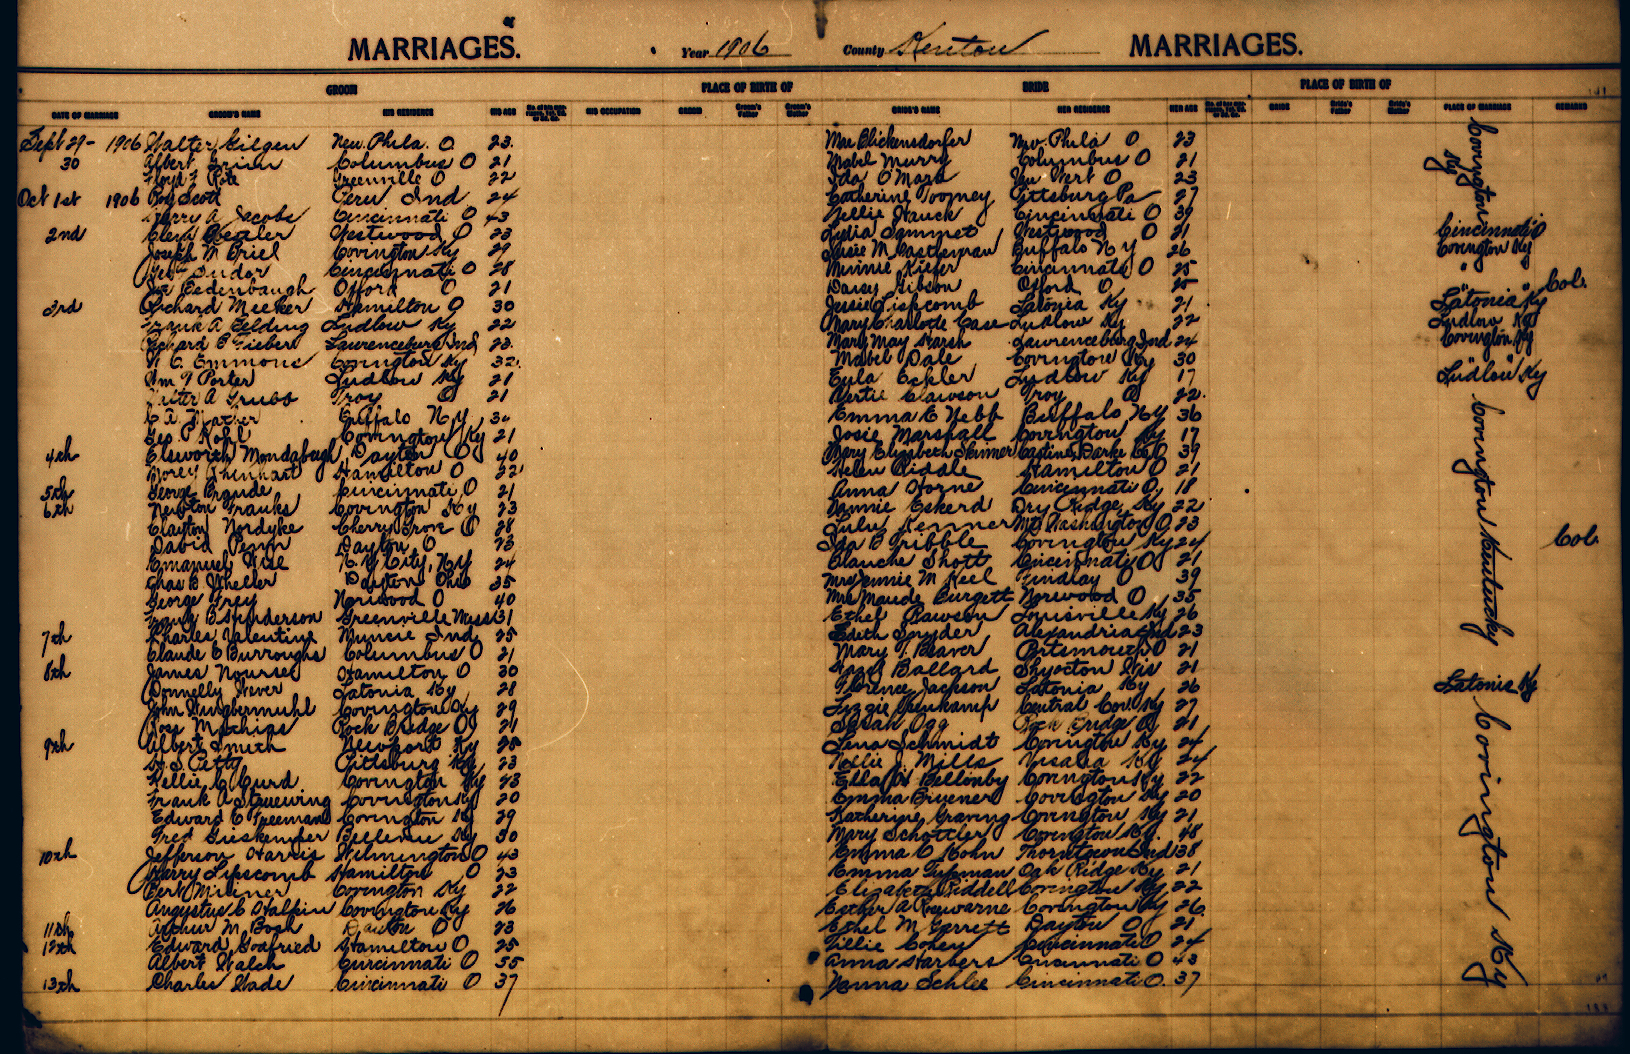 MARRIAGES. Year 1906 County Kenton MARRIAGES.
GROOM PLACE OF BIRTH OF BRIDE PLACE OF BIRTH OF
DATE OF MARRIAGE GROOM'S NAME HIS RESIDENCE HIS AGE HIS OCCUPATION GROOM Groom's Father Groom's Mother BRIDE'S NAME HER RESIDENCE HER AGE BRIDE Bride's Father Bride's Mother PLACE OF MARRIAGE REMARKS
Sept 29 - 1906 Walter Gilgen New Phila. O. 23 Mae Blickensdorfer New Phila O 23 Covington Ky
30 Albert Columbus O 21 Mabel Murry Columbus O 21
Floyd F Greenville O 22 Ida O'Mara Van Wert O 23
Oct 1st 1906 Roy Scott Peru Ind 24 Catherine Toomey Pittsburg Pa 27
Harry A Jacobs Cincinnati O 43 Nellie Hauck Cincinnati O 39
2nd Westwood O 23 Lydia Sammet Westwood O 21 Cincinnati O
Joseph M Briel Covington Ky 29 Susie M Castleman Buffalo N Y 26 Covington Ky
Cincinnati O 28 Minnie Kiefer Cincinnati O 25 "
Oxford O 21 Daisy Gibson Oxford O " Col.
3rd Richard Meeker Hamilton O 30 Jessie Lipscomb Latonia Ky 21 Latonia Ky
Frank A Belding Ludlow Ky 22 Mary Charlotte Case Ludlow Ky 22 Ludlow Ky
Richard B Siebert Lawrenceburg Ind 23 Mary May Harsh Lawrenceburg Ind 24 Covington Ky
W. C. Emmons Covington Ky 32 Mabel Dale Covington Ky 30 "
Wm T Porter Ludlow Ky 21 Eula Eckler Ludlow Ky 17 Ludlow Ky
Walter A Grubb Troy O 21 Gertie Clawson Troy O 22 Covington Kentucky
Buffalo N Y Emma E Webb Buffalo N Y 36
Geo. P Kohl Covington Ky 21 Josie Marshall Covington Ky 17
4th Elsworth Mondabaugh Dayton O 40 Mary Elizabeth Skinner Castine, Darke Co O 39
Morey Rhinhart Hamilton O 22 Helen Riddle Hamilton O 21
5th George Brande Cincinnati O 21 Anna Horne Cincinnati O 18
6th Newton Franks Covington Ky 23 Nannie Eskerd Dry Ridge, Ky 22
Clayton Nordyke Cherry Grove O 28 Lulu Kenner Mt Washington O 23
David Penn Dayton O 23 Ida B Tribble Covington Ky 24 Col.
Emanuel N. Y City, N.Y 24 Blanche Shott Cincinnati O 21
Chas B Wheeler Dayton Ohio 35 Mrs Jennie M Keel Findlay O 39
George Frey Norwood O 40 Mrs Maude Burgett Norwood O 35
Frank B Sunderson Greenville Miss 31 Ethel Rawson Louisville Ky 26
7th Charles Valentine Muncie Ind 25 Edith Snyder Alexandria Ind 23
Claude E Burroughs Columbus O 21 Mary T. Beaver Portsmouth O 21
8th James Nourse Hamilton O 30 Hazel Ballard Shiocton Wis 21
Donnelly Wever Latonia Ky 28 Florence Jackson Latonia Ky 26 Latonia Ky
John Covington Ky 29 Lizzie Central Cov. Ky 27 Covington Ky
Ross Mathias Rock Bridge O 21 Susan Ogg Rock Bridge O 21
9th Albert Smith Newport Ky 25 Lena Schmidt Covington Ky 24
Petty Pittsburg Ky 23 Nellie J. Mills Visalia Ky 24
Kellie C Curd Covington Ky 43 Ella W Bellonby Covington Ky 22
Frank A Struewing Covington Ky 20 Emma Bruener Covington Ky 20
Edward C Freeman Covington Ky 29 Katherine Graving Covington Ky 21
Fred Gieskemper Bellevue Ky 50 Mary Schottler Covington Ky. 48
10th Jefferson Harris Wilmington O 43 Emma C Kohn Thorntown Ind 38
Harry Lipscomb Hamilton O 23 Emma Tupman Oak Ridge Ky 21
Bert Milliner Covington Ky 22 Elizabeth Riddell Covington Ky 22
Augustus C Halpin Covington Ky 26 Esther A Covington Ky 26
11th Arthur M. Bosh Dayton O 23 Ethel M Gerrett Dayton O 21
12th Edward Godfried Hamilton O 25 Tillie Cohen Cincinnati O 24
Albert Walch Cincinnati O 55 Anna Harbers Cincinnati O 43
13th Charles Wade Cincinnati O 37 Nanna Schlee Cincinnati O. 37